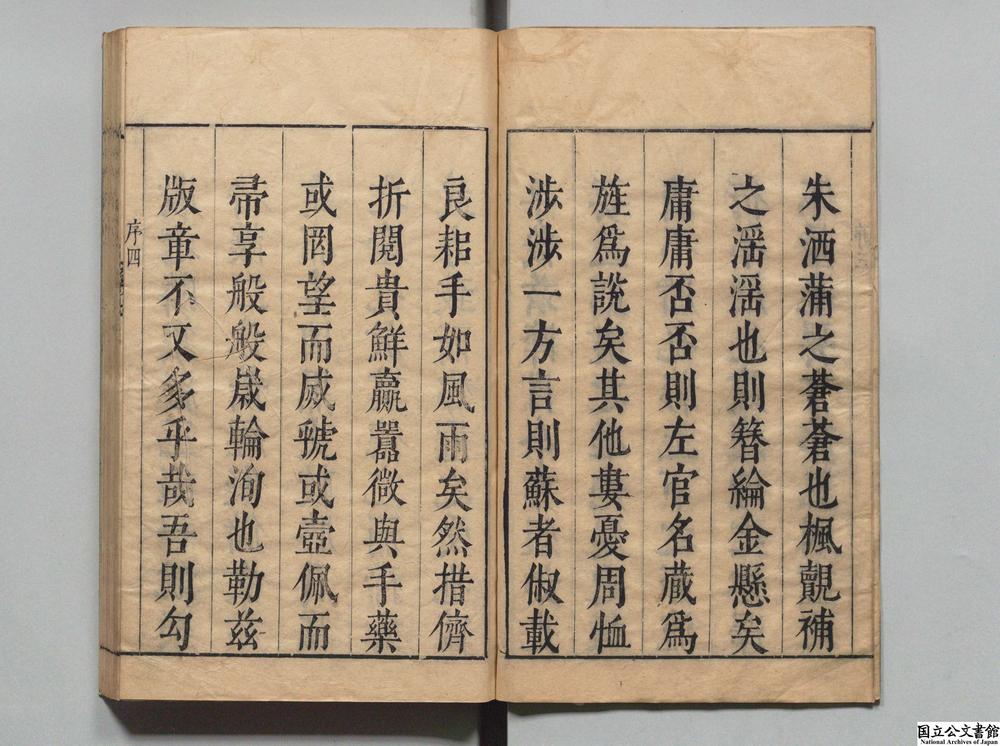 朱洒蒲之蒼蒼也楓覿補
之滛滛也則簪綸金懸矣
庸庸否否則左官名蕆爲
旌爲說矣其他婁憂周恤
涉涉一方言則蘇者俶載
良耜手如風雨矣然措儕
折閱貴鮮贏嚣微與手藥
或罔望而烕號或壺佩而
帚享般般歲輪洵也勒茲
版章不又多乎哉吾則勾
序四
国立公文書館
National Archives of Japan